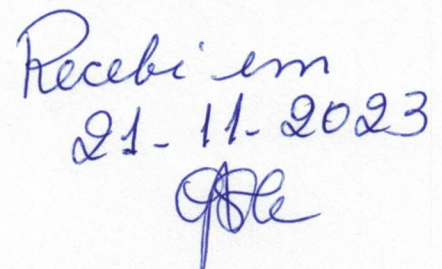 Recebi em
21-11-2023